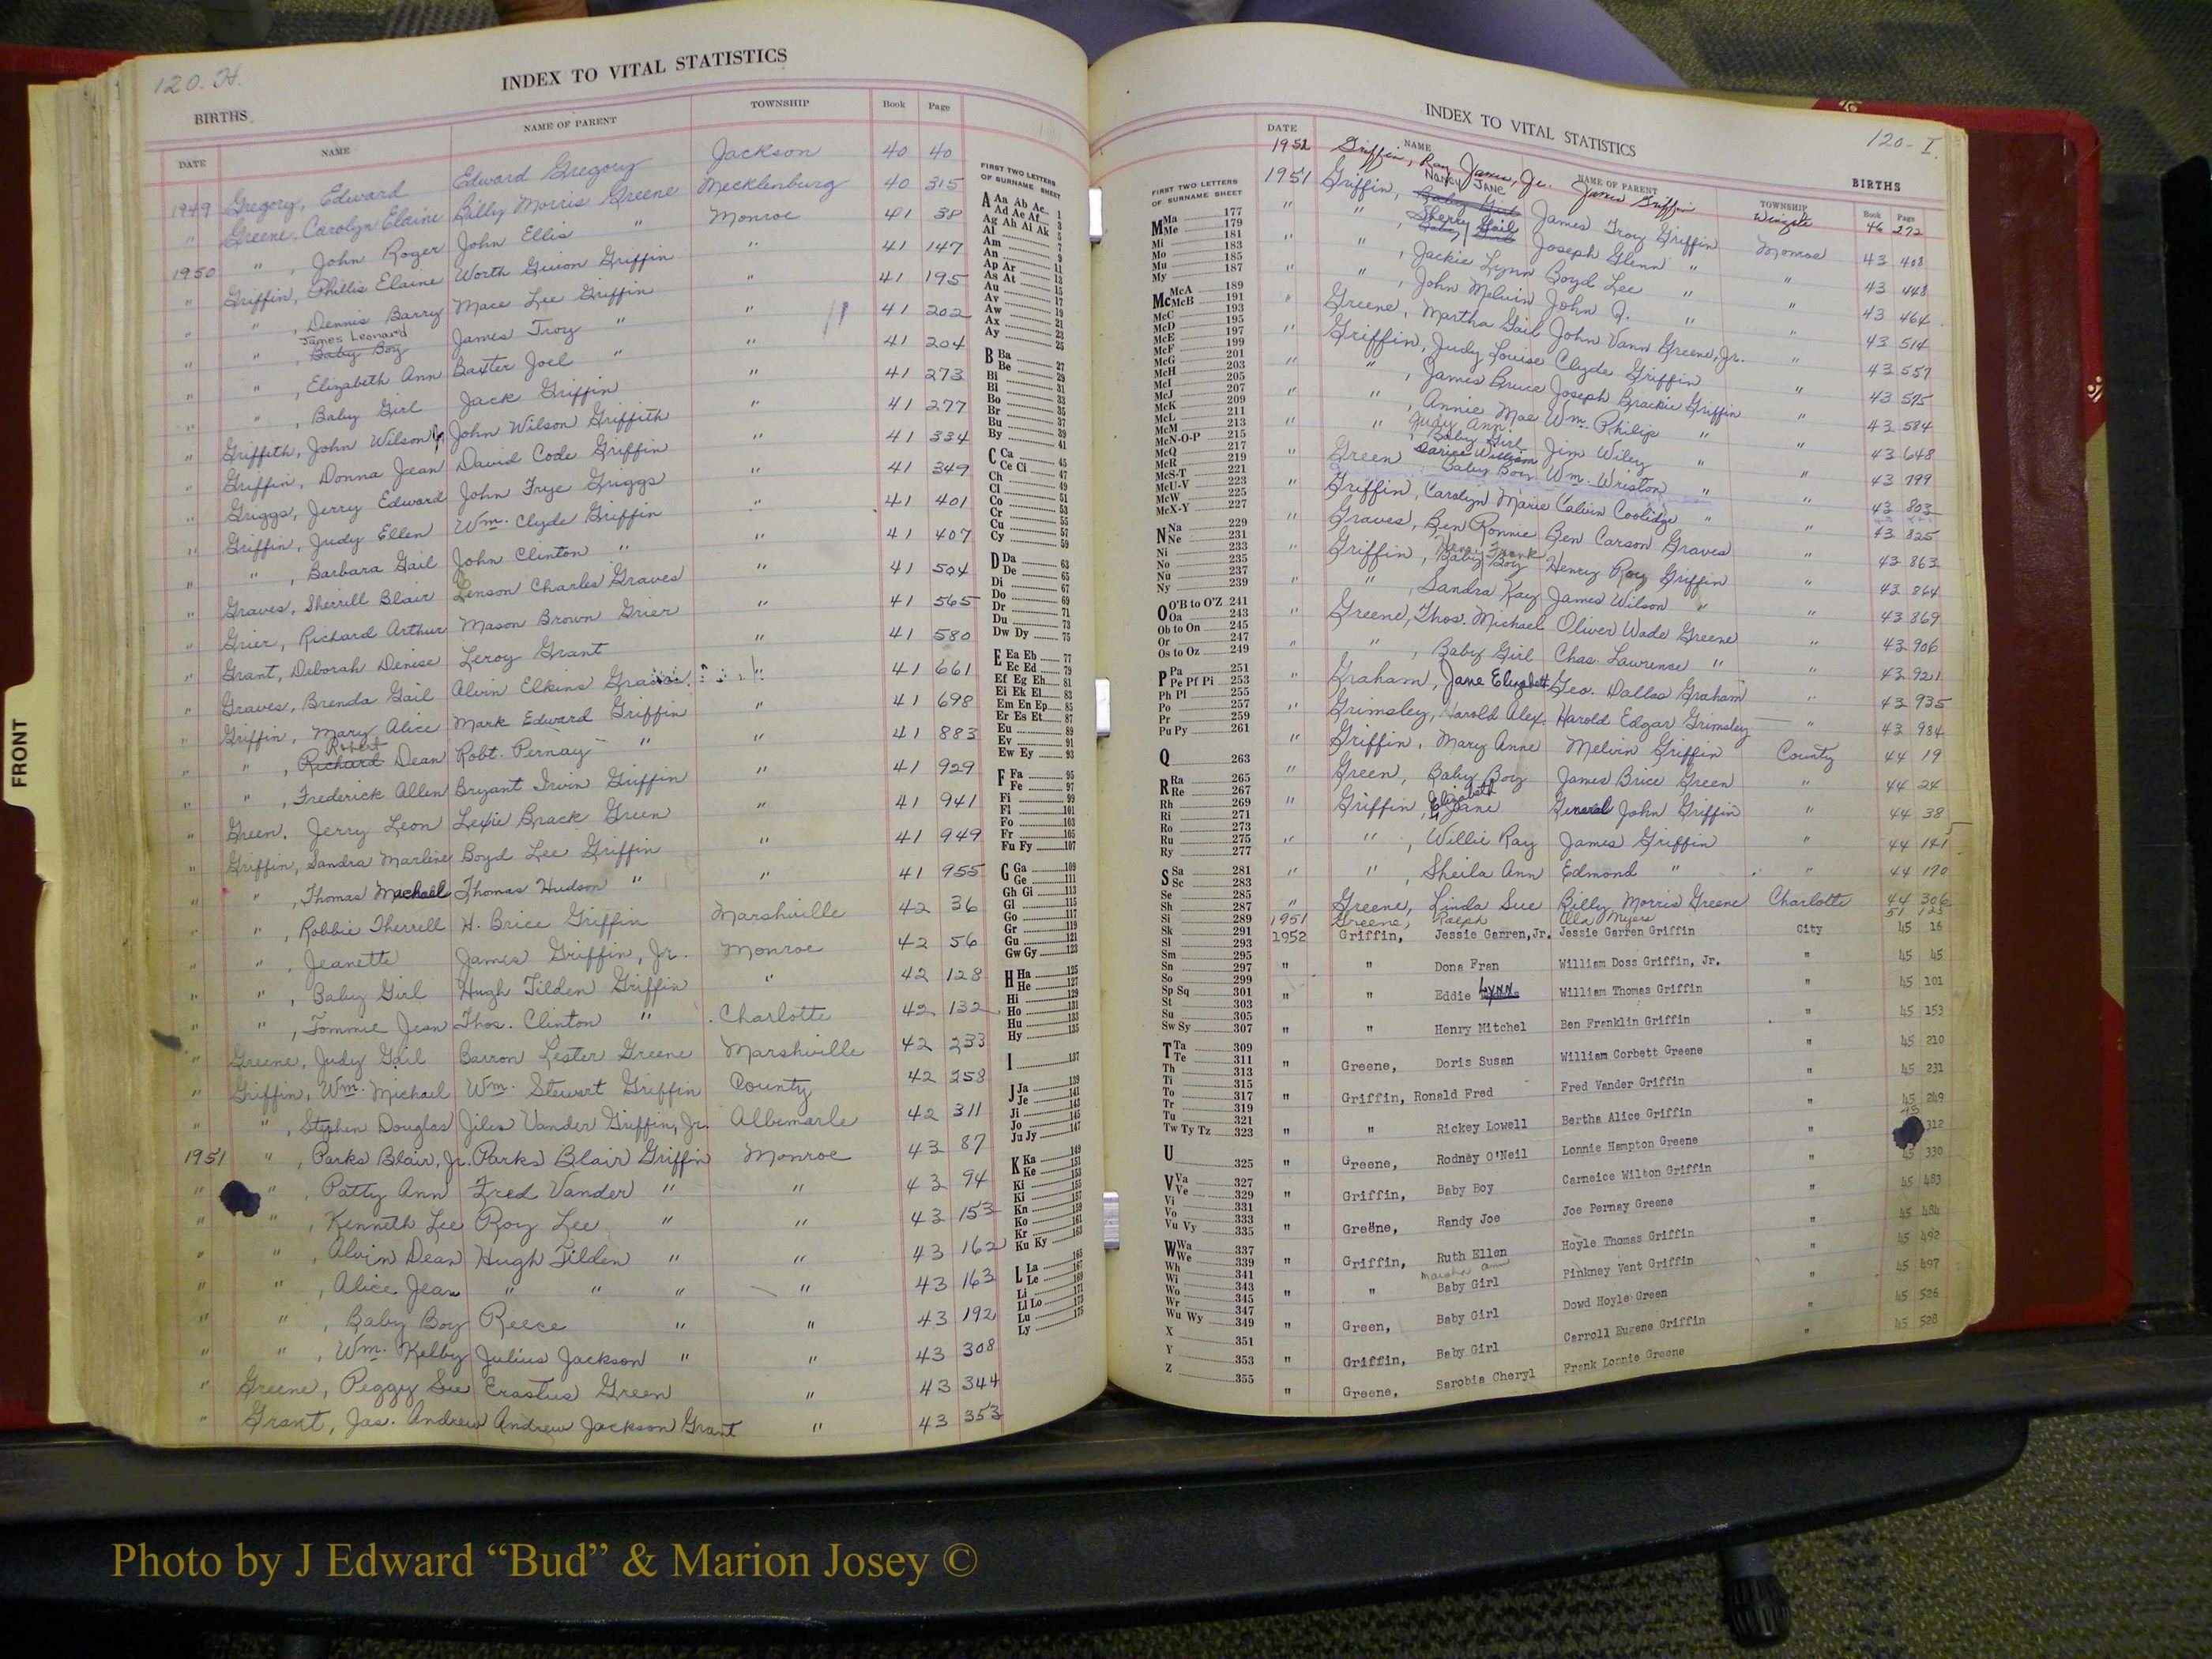 120-H.
INDEX TO VITAL STATISTICS
BIRTHS
DATE NAME NAME OF PARENT TOWNSHIP Book Page
1949 Gregory, Edward Edward Gregory Jackson 40 40
" Greene, Carolyn Elaine Billy Morris Greene Mecklenburg 40 315
1950 " , John Roger John Ellis " Monroe 41 38
" Griffin, Phillis Elaine Worth Guion Griffin " 41 147
" " , Dennis Barry Mace Lee Griffin " 41 195
James Leonard
" " , Baby Boy James Troy " " 41 202
" " , Elizabeth Ann Baxter Joel " " 41 204
" " , Baby Girl Jack Griffin " 41 273
" Griffith, John Wilson Jr John Wilson Griffith " 41 277
" Griffin, Donna Jean David Code Griffin " 41 334
" Griggs, Jerry Edward John Frye Griggs " 41 349
" Griffin, Judy Ellen Wm. Clyde Griffin " 41 401
" " , Barbara Gail John Clinton " " 41 407
" Graves, Sherrill Blair Benson Charles Graves " 41 504
" Grier, Richard Arthur Mason Brown Grier " 41 565
" Grant, Deborah Denise Leroy Grant " 41 580
" Graves, Brenda Gail Alvin Elkins Graves " 41 661
" Griffin, Mary Alice Mark Edward Griffin " 41 698
Robert
" " , Richard Dean Robt. Pernay " " 41 883
" " , Frederick Allen Bryant Irvin Griffin " 41 929
" Green, Jerry Leon Lexie Brack Green " 41 941
" Griffin, Sandra Marlene Boyd Lee Griffin " 41 949
" " , Thomas Michael Thomas Hudson " " 41 955
" " , Robbie Therrell H. Brice Griffin Marshville 42 36
" " , Jeanette James Griffin, Jr. Monroe 42 56
" " , Baby Girl Hugh Tilden Griffin " 42 128
" " , Tommie Jean Thos. Clinton " Charlotte 42 132
" Greene, Judy Gail Barron Lester Greene Marshville 42 233
" Griffin, Wm. Michael Wm. Stewart Griffin County 42 258
" " , Stephen Douglas Jiles Vander Griffin, Jr. Albemarle 42 311
1951 " , Parks Blair, Jr. Parks Blair Griffin Monroe 43 87
" " , Patty Ann Fred Vander " " 43 94
" " , Kenneth Lee Roy Lee " " 43 153
" " , Alvin Dean Hugh Tilden " " 43 162
" " , Alice Jean " " " " 43 163
" " , Baby Boy Reece " " 43 192
" " , Wm. Kelby Julius Jackson " " 43 308
" Greene, Peggy Sue Erastus Green " 43 344
" Grant, Jas. Andrew Andrew Jackson Grant " 43 353
FIRST TWO LETTERS
OF SURNAME SHEET
A Aa Ab Ac 1
Ad Ae Af 3
Ag Ah Ai Ak 5
Al 7
Am 9
An 11
Ap Ar 13
As At 15
Au 17
Av 19
Aw 21
Ax 23
Ay 25
B Ba 27
Be 29
Bi 31
Bl 33
Bo 35
Br 37
Bu 39
By 41
C Ca 45
Ce Ci 47
Ch 49
Cl 51
Co 53
Cr 55
Cu 57
Cy 59
D Da 63
De 65
Di 67
Do 69
Dr 71
Du 73
Dw Dy 75
E Ea Eb 77
Ec Ed 79
Ef Eg Eh 81
Ei Ek El 83
Em En Ep 85
Er Es Et 87
Eu 89
Ev 91
Ew Ey 93
F Fa 95
Fe 97
Fi 99
Fl 101
Fo 103
Fr 105
Fu Fy 107
G Ga 109
Ge 111
Gh Gi 113
Gl 115
Go 117
Gr 119
Gu 121
Gw Gy 123
H Ha 125
He 127
Hi 129
Ho 131
Hu 133
Hy 135
I 137
J Ja 139
Je 141
Ji 143
Jo 145
Ju Jy 147
K Ka 149
Ke 151
Ki 153
Kl 157
Kn 159
Ko 161
Kr 163
Ku Ky
L La 165
Le 167
Li 169
Ll Lo 171
Lu 173
Ly 175
INDEX TO VITAL STATISTICS
120-I.
BIRTHS
FIRST TWO LETTERS
OF SURNAME SHEET
M Ma 177
Me 179
Mi 181
Mo 183
Mu 185
My 187
Mc McA 189
McB 191
McC 193
McD 195
McE 197
McF 199
McG 201
McH 203
McI 205
McJ 207
McK 209
McL 211
McM 213
McN-O-P 215
McQ 217
McR 219
McS-T 221
McU-V 223
McW 225
McX-Y 227
N Na 229
Ne 231
Ni 233
No 235
Nu 237
Ny 239
O O'B to O'Z 241
Oa 243
Ob to On 245
Or 247
Os to Oz 249
P Pa 251
Pe Pf Pi 253
Ph Pl 255
Po 257
Pr 259
Pu Py 261
Q 263
R Ra 265
Re 267
Rh 269
Ri 271
Ro 273
Ru 275
Ry 277
S Sa 281
Sc 283
Se 285
Sh 287
Si 289
Sk 291
Sl 293
Sm 295
Sn 297
So 299
Sp Sq 301
St 303
Su 305
Sw Sy 307
T Ta 309
Te 311
Th 313
Ti 315
To 317
Tr 319
Tu 321
Tw Ty Tz 323
U 325
V Va 327
Ve 329
Vi 331
Vo 333
Vu Vy 335
W Wa 337
We 339
Wh 341
Wi 343
Wo 345
Wr 347
Wu Wy 349
X 351
Y 353
Z 355
DATE NAME NAME OF PARENT TOWNSHIP Book Page
1952 Griffin, Ray James, Jr. James Griffin Wingate 46 272
Nancy JANE
1951 Griffin, Baby Girl James Troy Griffin Monroe 43 408
Sherry Gail
" " , Baby Girl Joseph Glenn " " 43 448
" " , Jackie Lynn Boyd Lee " " 43 464
" " , John Melvin John Q. " " 43 514
" Greene, Martha Gail John Vann Greene, Jr. " 43 557
" Griffin, Judy Louise Clyde Griffin " 43 575
" " , James Bruce Joseph Brackie Griffin " 43 584
" " , Annie Mae Wm. Philip " " 43 648
Judy Ann
" " , Baby Girl Jim Wiley " " 43 799
Darice William
" Green Baby Boy Wm. Wriston " " 43 803
" Griffin, Carolyn Marie Calvin Coolidge " " 43 825
" Graves, Ben Ronnie Ben Carson Graves " 43 863
Henry Frank
" Griffin, Baby Boy Henry Roy Griffin " 43 864
" " , Sandra Kay James Wilson " " 43 869
" Greene, Thos. Michael Oliver Wade Greene " 43 906
" " , Baby Girl Chas. Lawrence " " 43 921
" Graham, Jane Elizabeth Geo. Dallas Graham " 43 935
" Grimsley, Harold Alex. Harold Edgar Grimsley " 43 984
" Griffin, Mary Anne Melvin Griffin County 44 19
" Green, Baby Boy James Brice Green " 44 24
Elizabeth
" Griffin, Jane General John Griffin " 44 38
" " , Willie Ray James Griffin " 44 141
" " , Sheila Ann Edmond " " 44 170
" Greene, Linda Sue Billy Morris Greene Charlotte 44 306
1951 Greene, Ralph Ola Myers 51 125
1952 Griffin, Jessie Garren, Jr. Jessie Garren Griffin City 45 16
" " Dona Fran William Doss Griffin, Jr. " 45 45
" " Eddie Lynn William Thomas Griffin " 45 101
" " Henry Mitchel Ben Franklin Griffin " 45 153
" Greene, Doris Susan William Corbett Greene " 45 210
" Griffin, Ronald Fred Fred Vander Griffin " 45 231
" " Rickey Lowell Bertha Alice Griffin " 45 249
" Greene, Rodney O'Neil Lonnie Hampton Greene " 45 312
" Griffin, Baby Boy Carneice Wilton Griffin " 45 330
" Greene, Randy Joe Joe Pernay Greene " 45 483
" Griffin, Ruth Ellen Hoyle Thomas Griffin " 45 484
marsha ann
" " Baby Girl Pinkney Vent Griffin " 45 492
" Green, Baby Girl Dowd Hoyle Green " 45 497
" Griffin, Baby Girl Carroll Eugene Griffin " 45 526
" Greene, Sarobia Cheryl Frank Lonnie Greene " 45 528
FRONT
Photo by J Edward “Bud” & Marion Josey ©